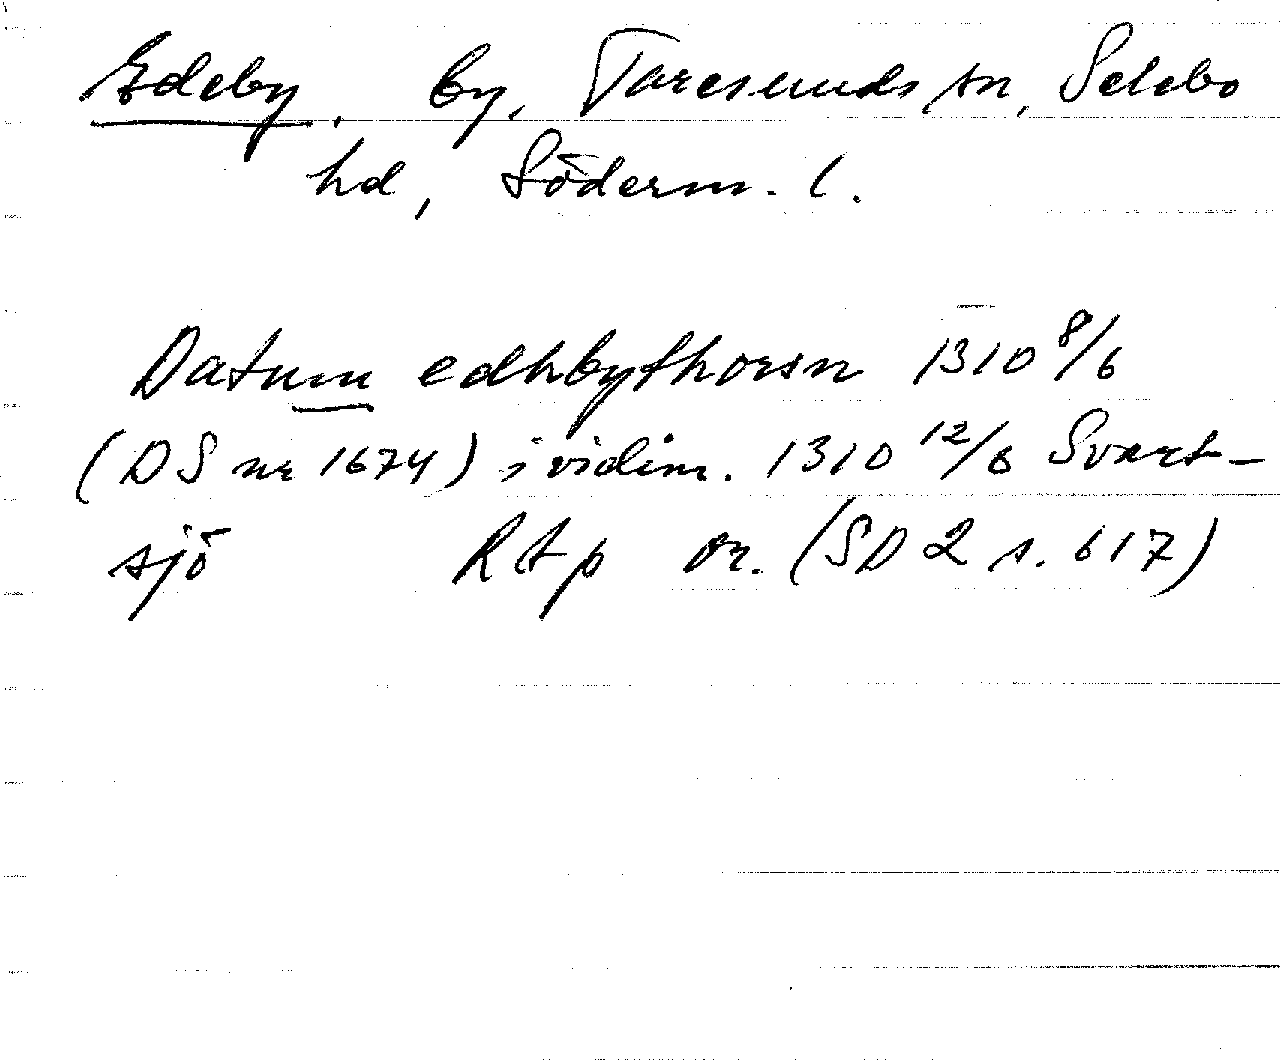 Edeby, by, Toresunds sn, Selebo
hd, Söderm. l.
Datum edhbythorsn 1310 8/6
(DS nr 1674) i vidim. 1310 12/6 Svart-
sjö RAp or. (SD 2 s. 617)